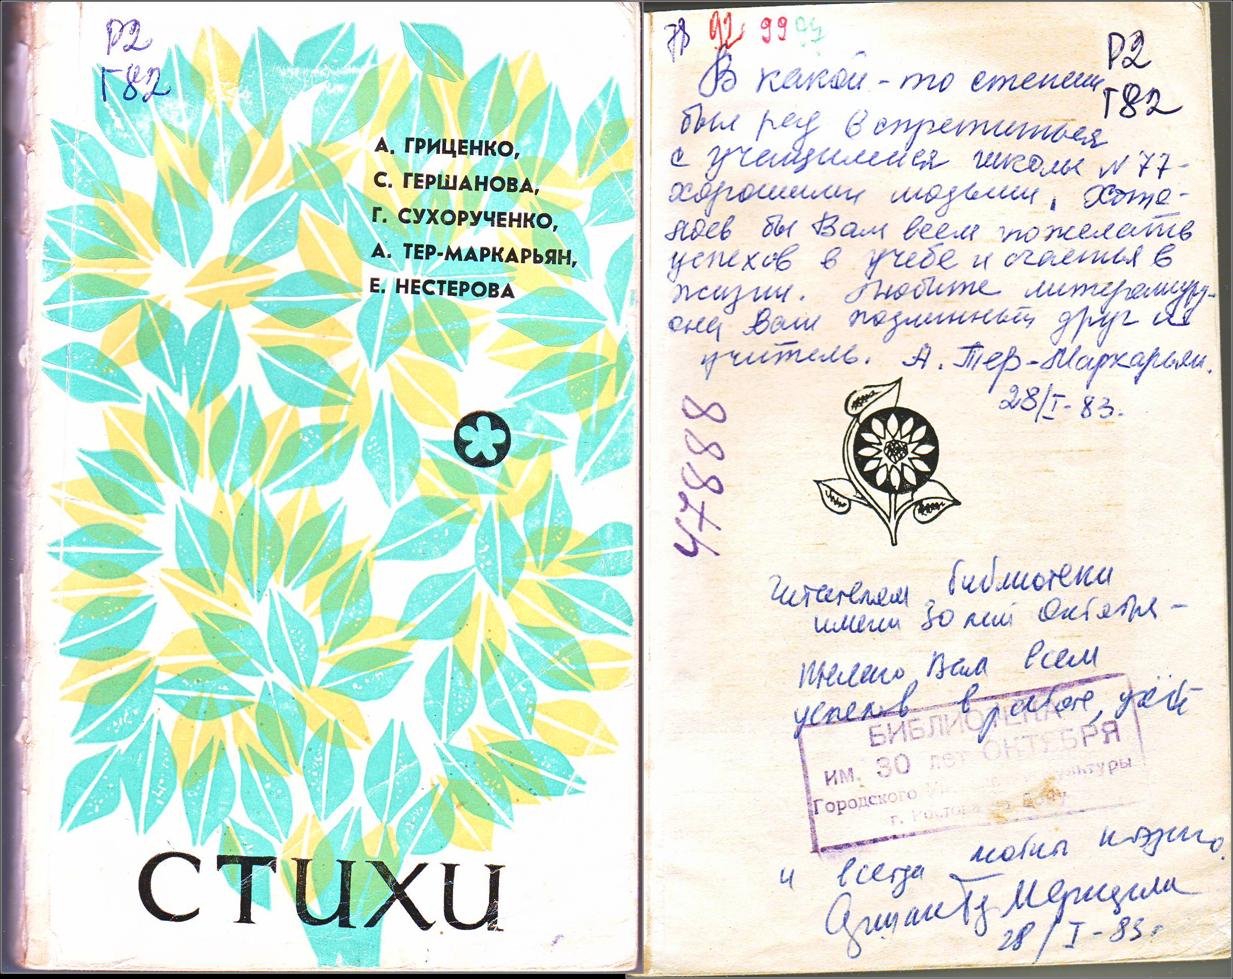 Р2
Г82
А. ГРИЦЕНКО,
С. ГЕРШАНОВА,
Г. СУХОРУЧЕНКО,
А. ТЕР-МАРКАРЬЯН,
Е. НЕСТЕРОВА
СТИХИ
92 99 94
Р2
Г82
В какой-то степени
был рад встретиться
с учащимися школы N 77 -
хорошими людьми. Хоте-
лось бы Вам всем пожелать
успехов в учебе и счастья в
жизни. Любите литературу -
она Ваш подлинный друг и
учитель. А. Тер-Маркарьян.
28/I-83.
47888
Читателям библиотеки
имени 30 лет Октября -
желаю Вам всем
успехов в работе, учёбе
БИБЛИОТЕКА
им. 30 лет ОКТЯБРЯ
Городского культуры
г. Ростова на Дону
и всегда любить поэзию.
28/I-83г.